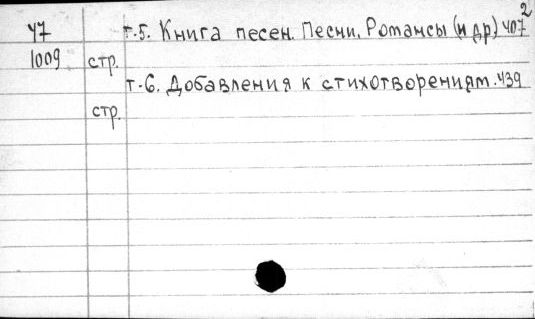 2
Ч7 т.5. Книга песен. Песни. Романсы (и др) 407
1009 стр.
т.6. Добавления к стихотворениям. 439
стр.